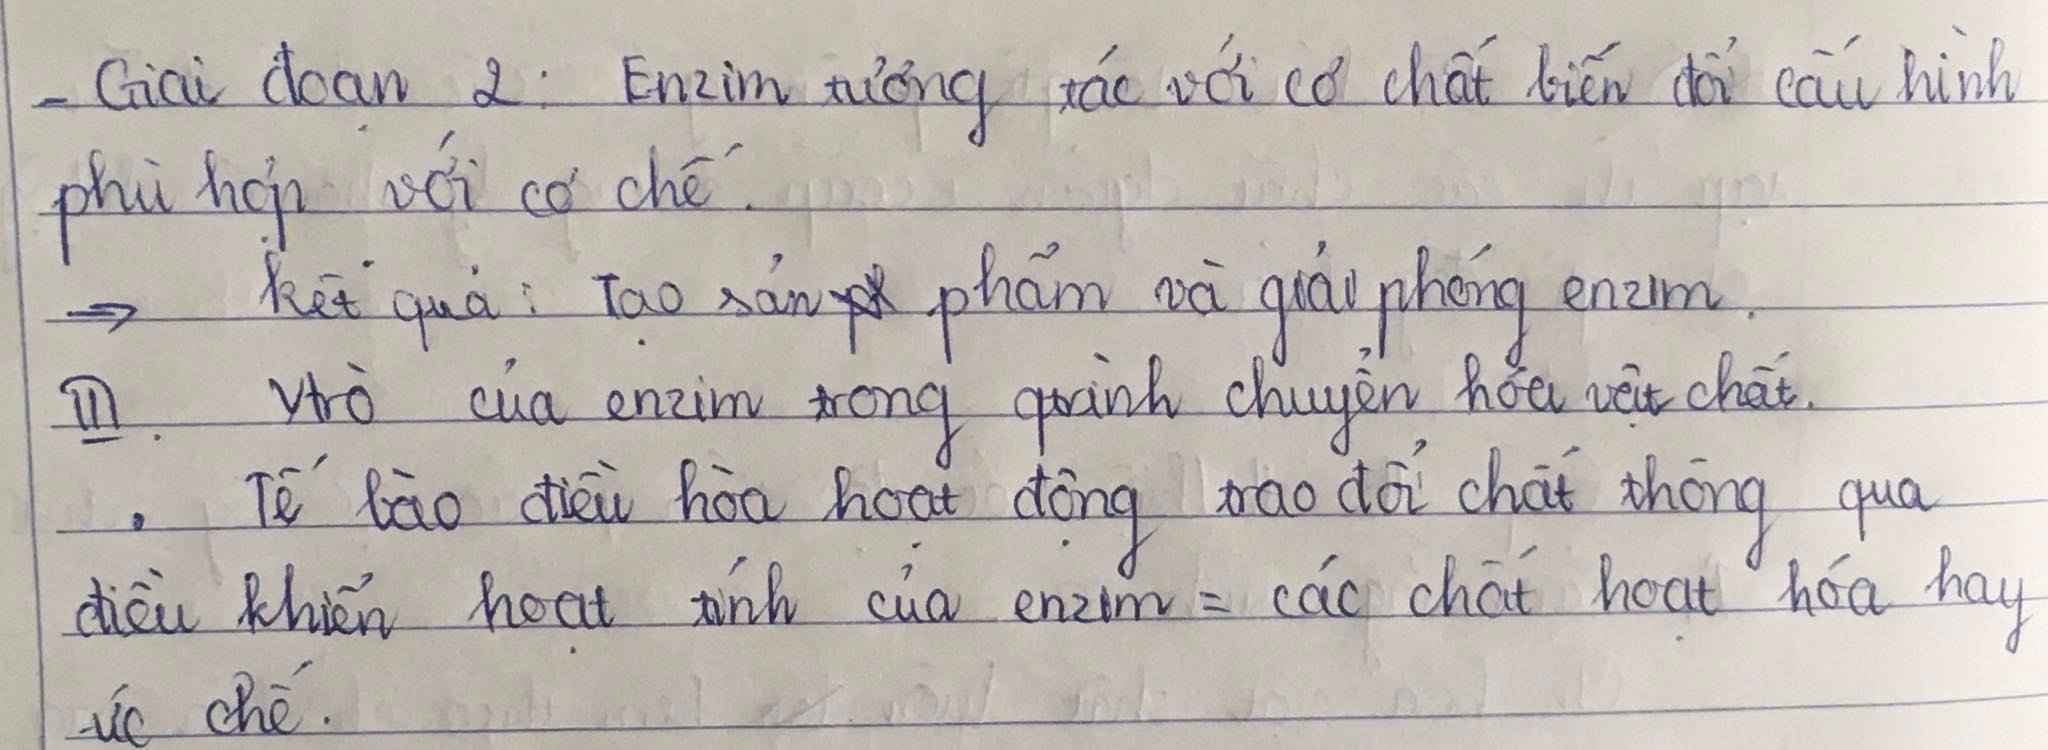 - Giai đoạn 2: Enzim tương tác với cơ chất biến đổi cấu hình
phù hợp với cơ chế.
⇒ Kết quả: Tạo sản phẩm và giải phóng enzim.
III. Vtrò của enzim trong qtrình chuyển hóa vật chất.
. Tế bào điều hòa hoạt động trao đổi chất thông qua
điều khiển hoạt tính của enzim = các chất hoạt hóa hay
ức chế.